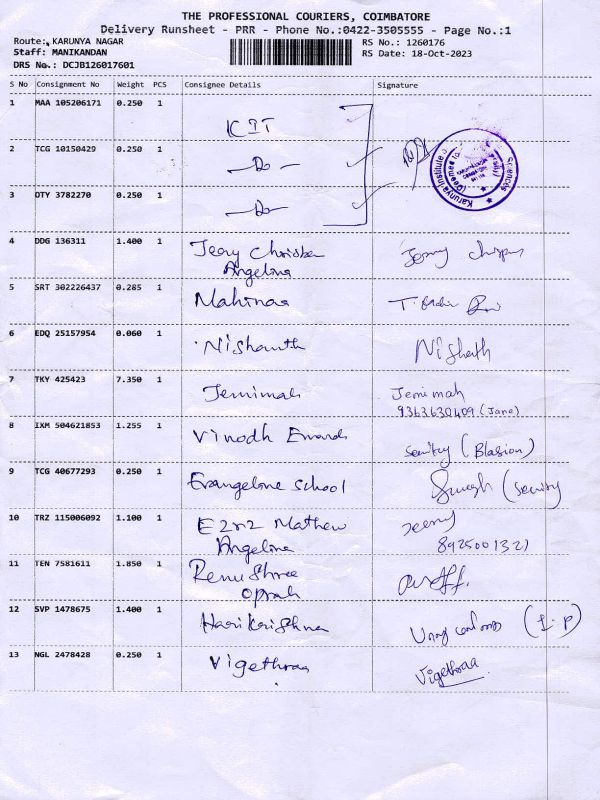 THE PROFESSIONAL COURIERS, COIMBATORE
Delivery Runsheet - PRR - Phone No.:0422-3505555 - Page No.:1
Route: KARUNYA NAGAR RS No.: 1260176
Staff: MANIKANDAN RS Date: 18-Oct-2023
DRS No.: DCJB126017601
S No Consignment No Weight PCS Consignee Details Signature
1 MAA 105206171 0.250 1 KIT
2 TCG 10150429 0.250 1 -Do-
3 OTY 3782270 0.250 1 -Do-
Karunya Institute Sciences (Deemed to
4 DDG 136311 1.400 1 Angelina
5 SRT 302226437 0.285 1 Mahinaa
6 EDQ 25157954 0.060 1 Nishanth Nishath
7 TKY 425423 7.350 1 Jemimah Jemimah
9363630409 (Jane)
8 IXM 504621853 1.255 1 Vinodh (Blasion)
9 TCG 40677293 0.250 1 Evangeline School
10 TRZ 115006092 1.100 1 Mathew
Angelina
11 TEN 7581611 1.850 1 Renu Shree
Oprah
12 SVP 1478675 1.400 1 Harikrishna
13 NGL 2478428 0.250 1 Vigethraa Vigethraa